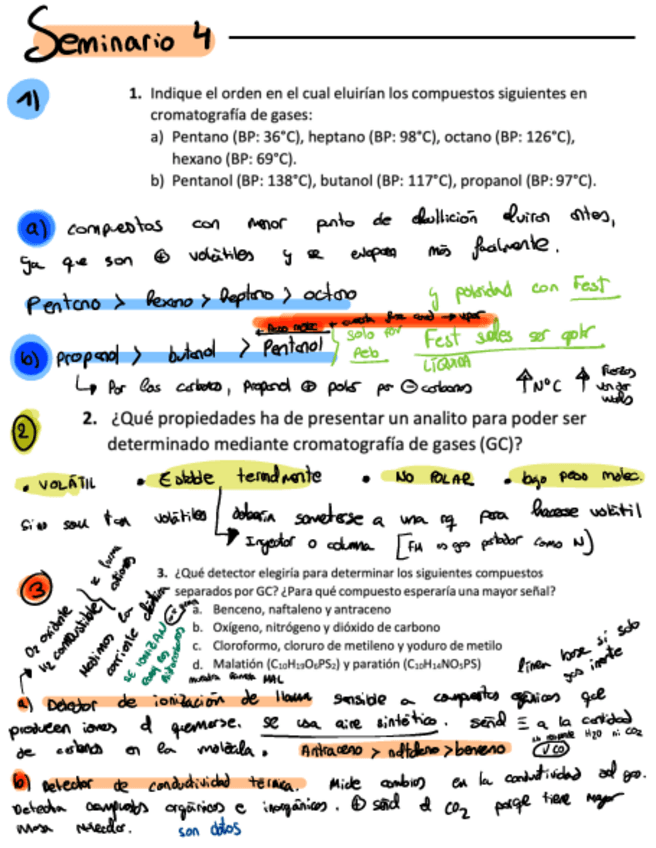 Seminario 4
1)
1. Indique el orden en el cual eluirían los compuestos siguientes en
cromatografía de gases:
a) Pentano (BP: 36°C), heptano (BP: 98°C), octano (BP: 126°C),
hexano (BP: 69°C).
b) Pentanol (BP: 138°C), butanol (BP: 117°C), propanol (BP: 97°C).
a) compuestos con menor punto de ebullición eluiran antes,
ya que son ⊕ volátiles y se evaporan más facilmente.
Pentano > hexano > heptano > octano
y polaridad con Fest
b) Propanol > butanol > Pentanol
solo por
Peb
Fest suele ser polar
LÍQUIDA
↳ Por los carbonos, Propanol ⊕ polar por ⊖ carbonos
↑ NºC ↑ Fuerzas
van der
waals
2
2. ¿Qué propiedades ha de presentar un analito para poder ser
determinado mediante cromatografía de gases (GC)?
• VOLÁTIL • Estable termicamente • NO POLAR • bajo peso molec.
Si no son tan volátiles deberían someterse a una rq para hacerse volátil
Inyector o columna [FM es gas portador como N]
3
3. ¿Qué detector elegiría para determinar los siguientes compuestos
separados por GC? ¿Para qué compuesto esperaría una mayor señal?
a. Benceno, naftaleno y antraceno
b. Oxígeno, nitrógeno y dióxido de carbono
c. Cloroformo, cloruro de metileno y yoduro de metilo
d. Malatión (C₁₀H₁₉O₆PS₂) y paratión (C₁₀H₁₄NO₅PS)
O₂ oxidante
H₂ combustible
= llama
Medimos la
corriente
SE IONIZAN
línea base si solo
gas inerte
a) Detector de ionización de llama sensible a compuestos orgánicos que
producen iones al quemarse. se usa aire sintético. señal ≡ a la cantidad
de carbonos en la molécula. Antraceno > naftaleno > benceno
H₂O ni CO₂
CO
b) Detector de conductividad térmica. Mide cambios en la conductividad del gas.
Detecta compuestos orgánicos e inorgánicos. ⊕ señal el CO₂ porque tiene mayor
masa molecular. son datos